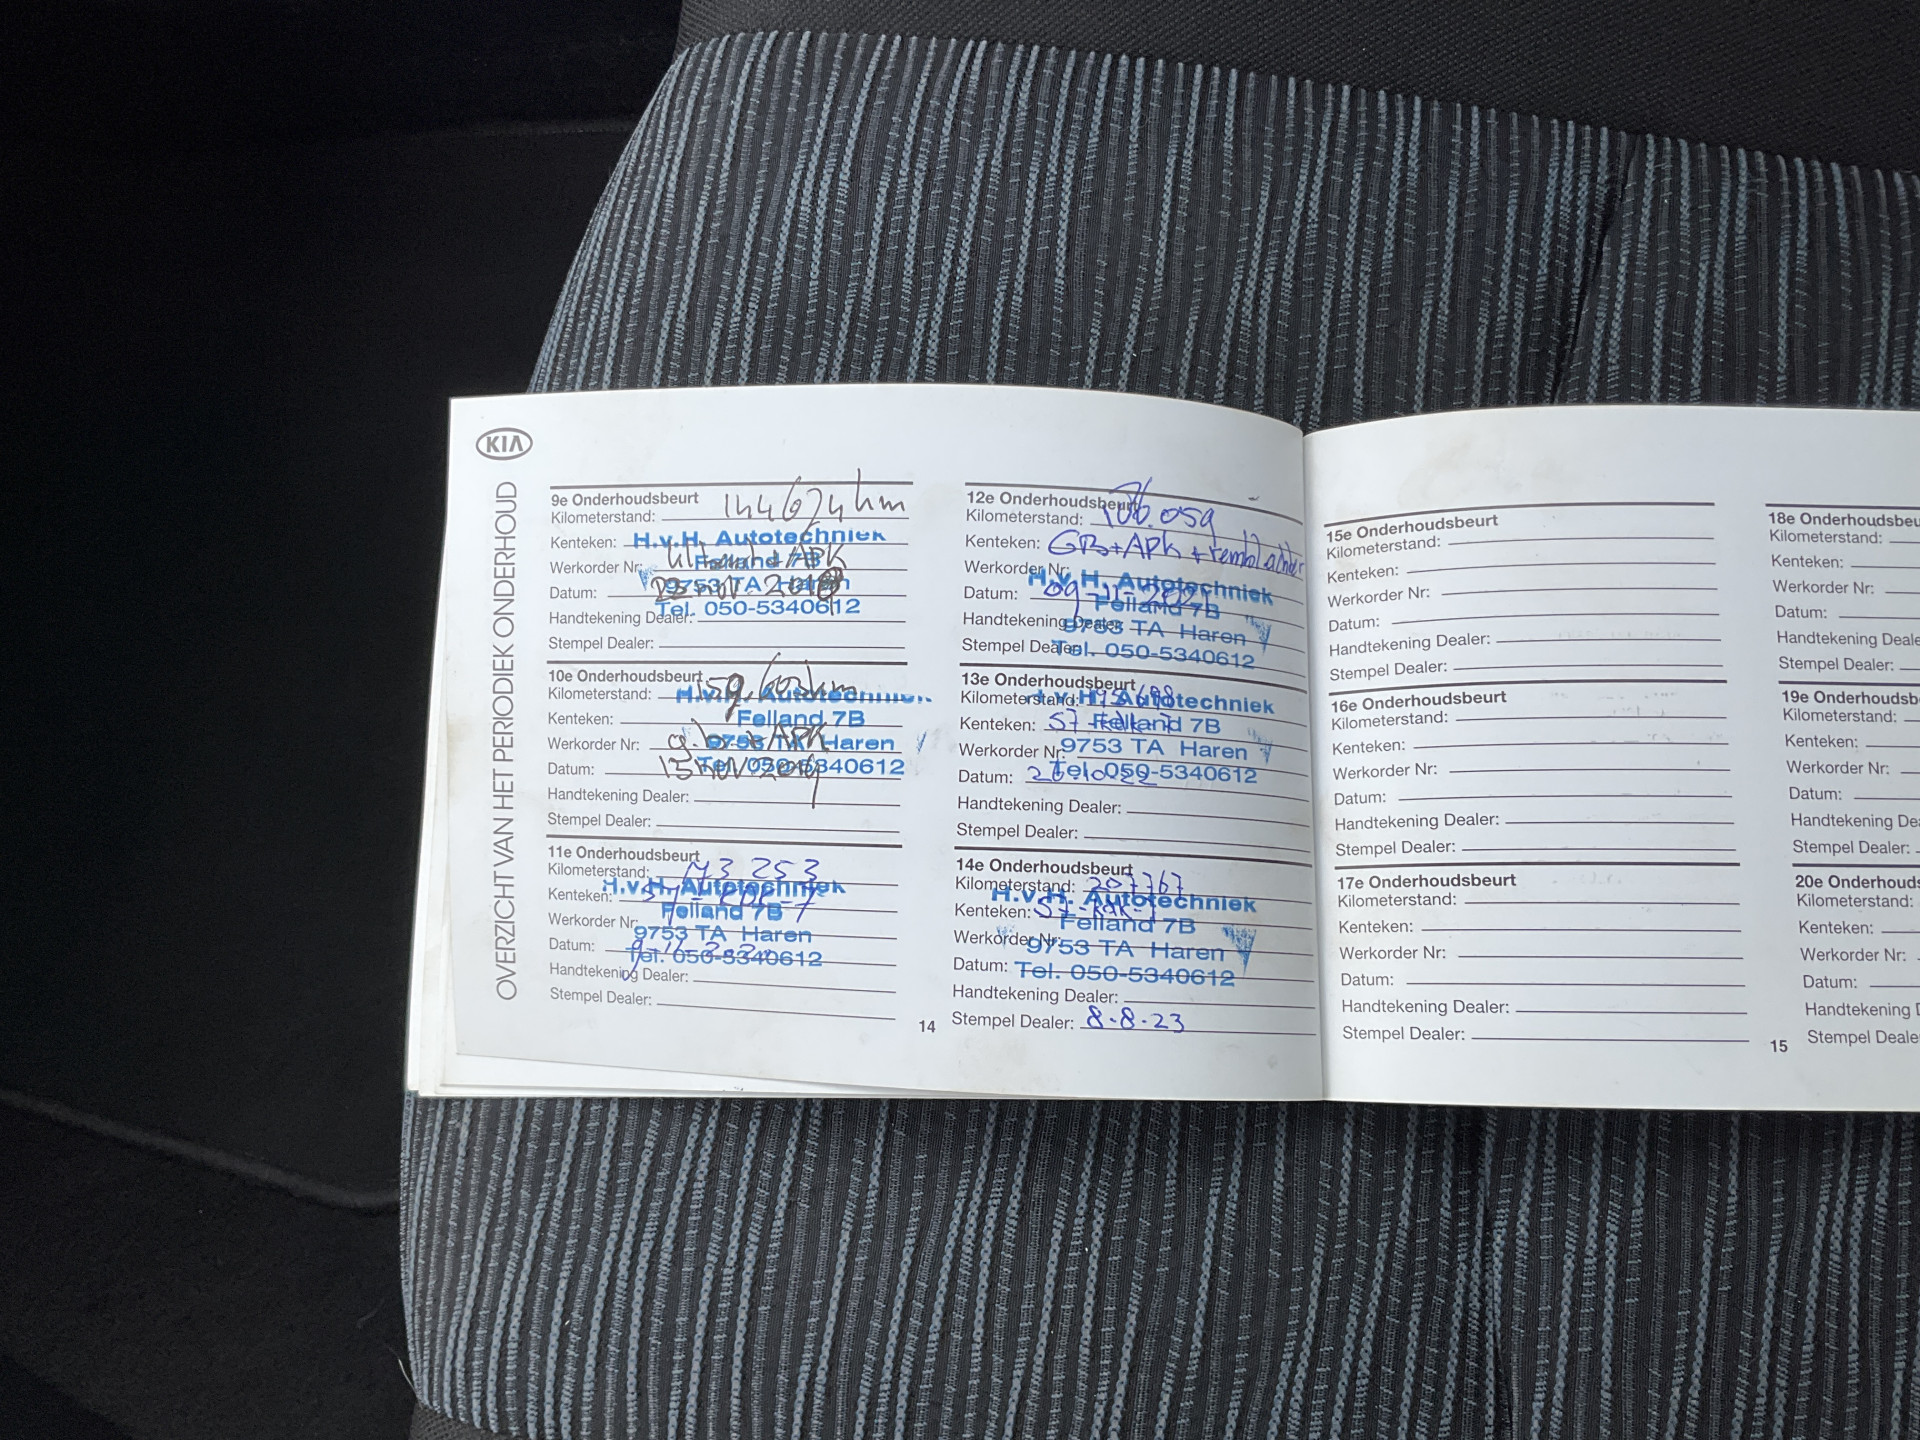 KIA
OVERZICHT VAN HET PERIODIEK ONDERHOUD
9e Onderhoudsbeurt
Kilometerstand: 144624 km
Kenteken: H.v.H. Autotechniek
Felland 7B
+ APK
Werkorder Nr:
9753 TA Haren
Datum: NOV 2018
Tel. 050-5340612
Handtekening Dealer:
Stempel Dealer:
10e Onderhoudsbeurt
Kilometerstand: 159.603 km
H.v.H. Autotechniek
Kenteken: Felland 7B
Werkorder Nr: g.b. + APK
9753 TA Haren
Datum: 15 NOV 2019
Tel. 050-5340612
Handtekening Dealer:
Stempel Dealer:
11e Onderhoudsbeurt
Kilometerstand: 173 253
H.v.H. Autotechniek
Kenteken:
Felland 7B
Werkorder Nr:
9753 TA Haren
Datum:
Tel. 050-5340612
Handtekening Dealer:
Stempel Dealer:
12e Onderhoudsbeurt
Kilometerstand: 186.059
Kenteken: GB + APK + remblokken
Werkorder Nr:
H.v.H. Autotechniek
Datum: 09-11-2021
Felland 7B
Handtekening Dealer:
9753 TA Haren
Stempel Dealer:
Tel. 050-5340612
13e Onderhoudsbeurt
Kilometerstand:
H.v.H. Autotechniek
Kenteken: 57-
Felland 7B
Werkorder Nr:
9753 TA Haren
Datum:
Tel. 050-5340612
Handtekening Dealer:
Stempel Dealer:
14e Onderhoudsbeurt
Kilometerstand: 207767
H.v.H. Autotechniek
Kenteken: 57-
Felland 7B
Werkorder Nr:
9753 TA Haren
Datum:
Tel. 050-5340612
Handtekening Dealer:
Stempel Dealer: 8-8-23
14
15e Onderhoudsbeurt
Kilometerstand:
Kenteken:
Werkorder Nr:
Datum:
Handtekening Dealer:
Stempel Dealer:
16e Onderhoudsbeurt
Kilometerstand:
Kenteken:
Werkorder Nr:
Datum:
Handtekening Dealer:
Stempel Dealer:
17e Onderhoudsbeurt
Kilometerstand:
Kenteken:
Werkorder Nr:
Datum:
Handtekening Dealer:
Stempel Dealer:
15
18e Onderhoudsbeu
Kilometerstand:
Kenteken:
Werkorder Nr:
Datum:
Handtekening Deale
Stempel Dealer:
19e Onderhoudsb
Kilometerstand:
Kenteken:
Werkorder Nr:
Datum:
Handtekening Dea
Stempel Dealer:
20e Onderhouds
Kilometerstand:
Kenteken:
Werkorder Nr:
Datum:
Handtekening D
Stempel Deale